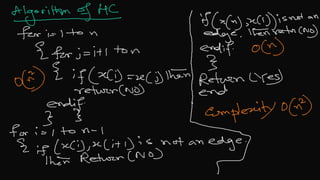 Algorithm of HC
for i=1 to n
{ for j=i+1 to n
O(n²) { if (x(i)=x(j)) then
return(NO)
endif
} }
for i=1 to n-1
{ if (x(i), x(i+1)) is not an edge
Then Return(NO)
if (x(n), x(1)) is not an
edge. Then retn(NO)
endif O(n)
}
Return (Yes)
end
Complexity O(n²)